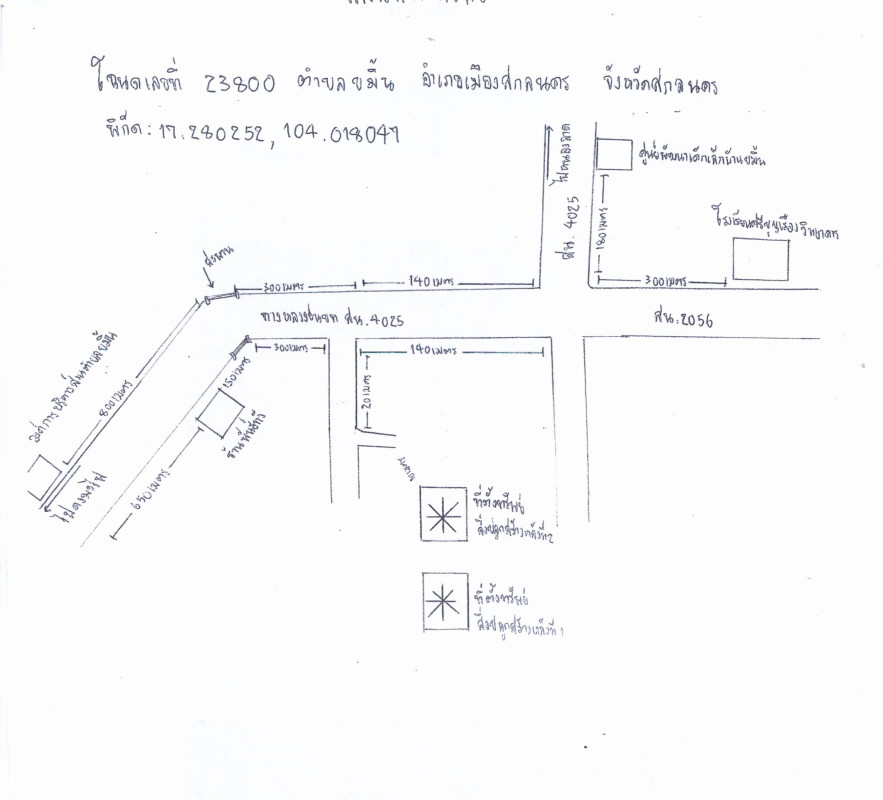 โฉนดเลขที่ 23800 ตำบลขมิ้น อำเภอเมืองสกลนคร จังหวัดสกลนคร
พิกัด: 17.280252, 104.018047
ไปหนองลาด
สน. 4025
ศูนย์พัฒนาเด็กเล็กบ้านขมิ้น
180เมตร
โรงเรียนศรีบุญเรืองวิทยาคาร
300เมตร
สะพาน
300เมตร
140เมตร
ทางหลวงชนบท สน.4025
สน.2056
300เมตร
140เมตร
20เมตร
150เมตร
800เมตร
องค์การบริหารส่วนตำบลขมิ้น
650เมตร
ที่ตั้งทรัพย์
สิ่งปลูกสร้างหลังที่2
ที่ตั้งทรัพย์
สิ่งปลูกสร้างหลังที่ 1